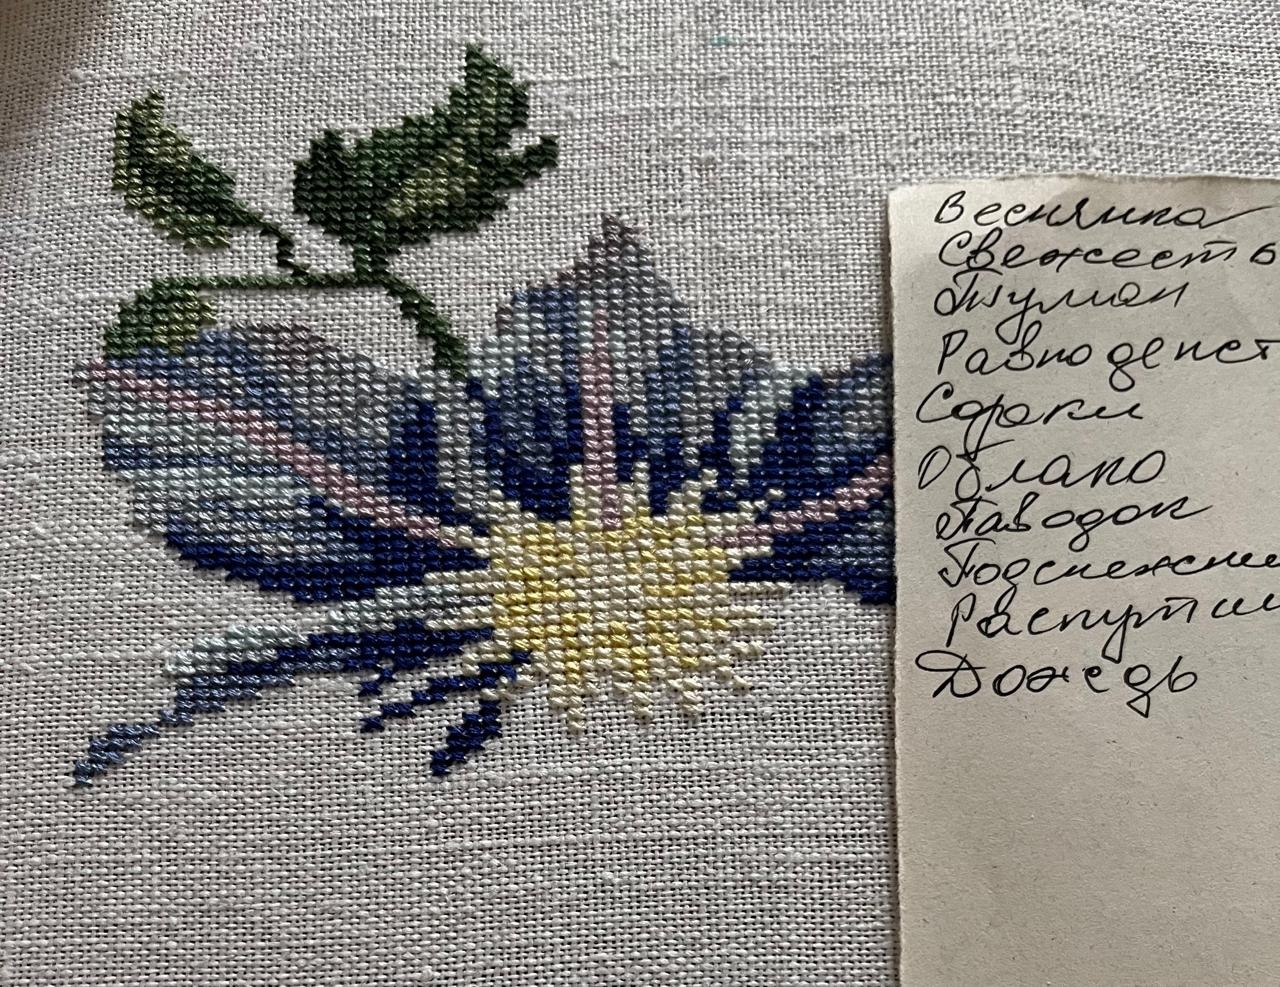 Веснянка
Свежесть
Туман
Равноденст
Сороки
Облако
Паводок
Подснежни
Распутиц
Дождь